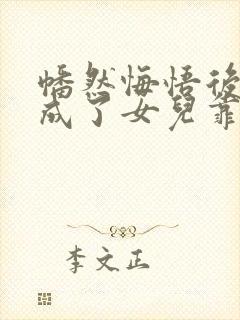 幡然悔悟後
成了女兒靠
李文正